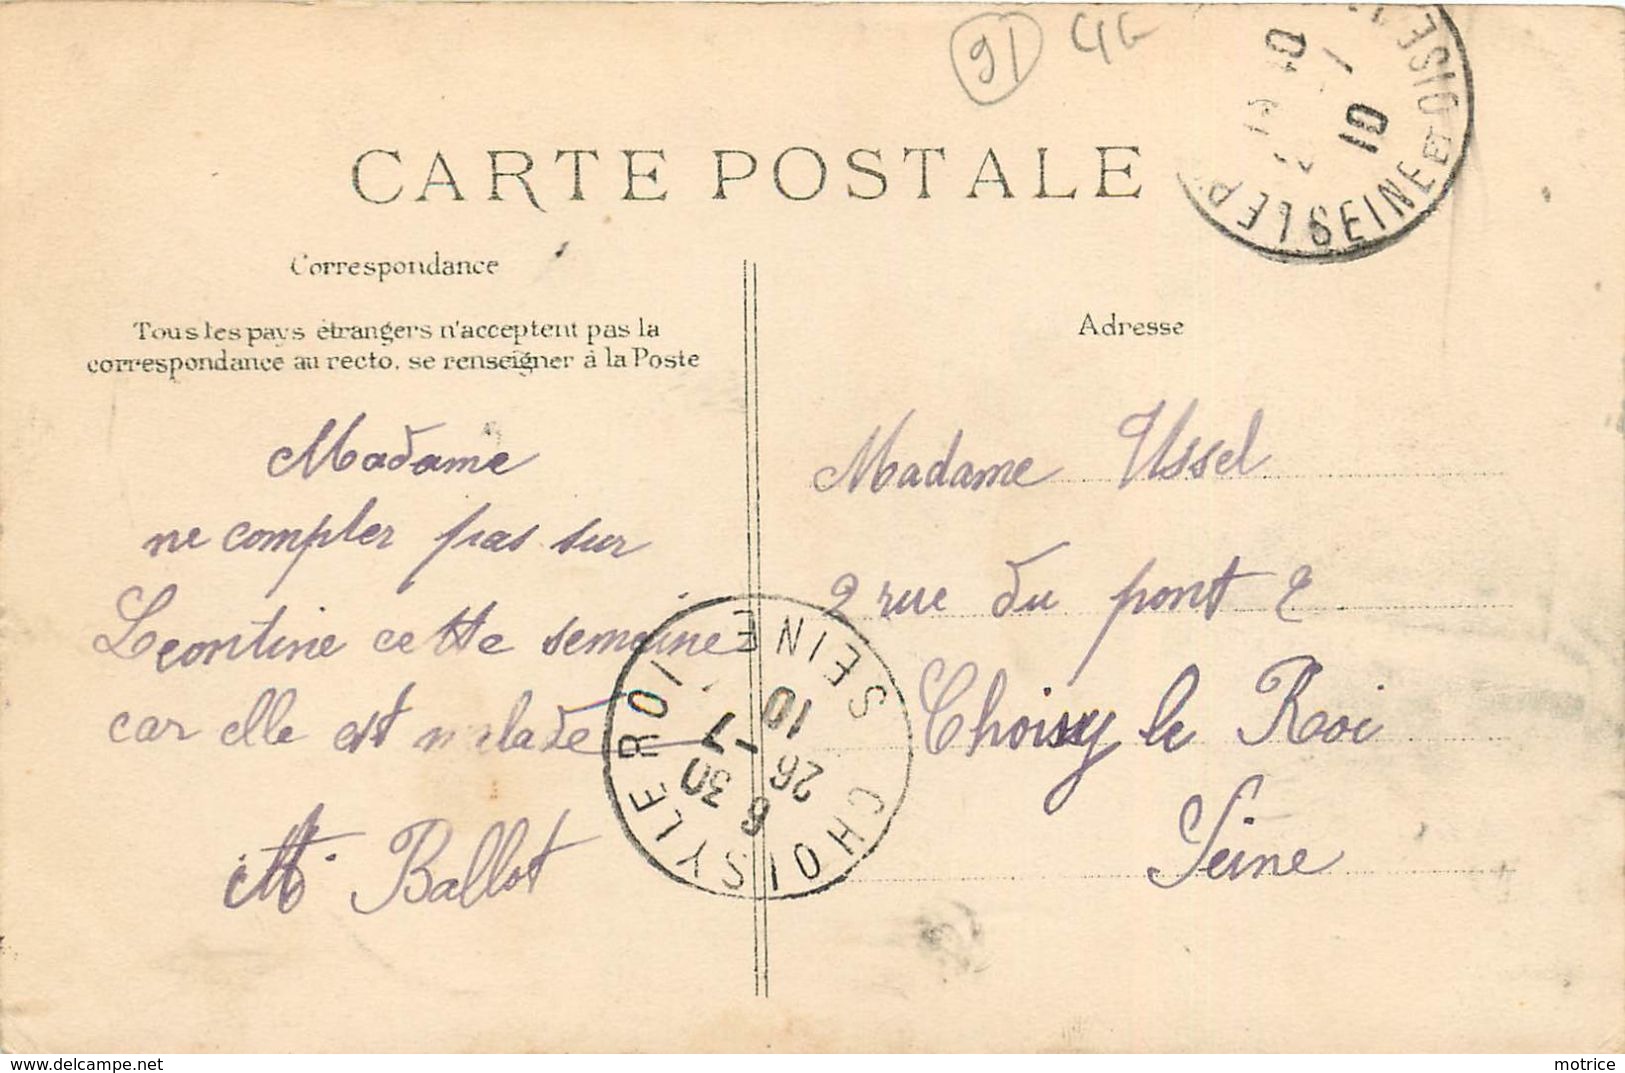 91
CARTE POSTALE
Correspondance
Tous les pays étrangers n'acceptent pas la
correspondance au recto, se renseigner à la Poste
Adresse
Madame
ne compter pas sur
Leontine cette semaine
car elle est malade
M. Ballot
Madame Ussel
2 rue du pont 2
Choisy le Roi
Seine
SEINE ET OISE
10
10
CHOISY LE ROI SEINE
6 30
26 -1
10
delcampe.net
motrice